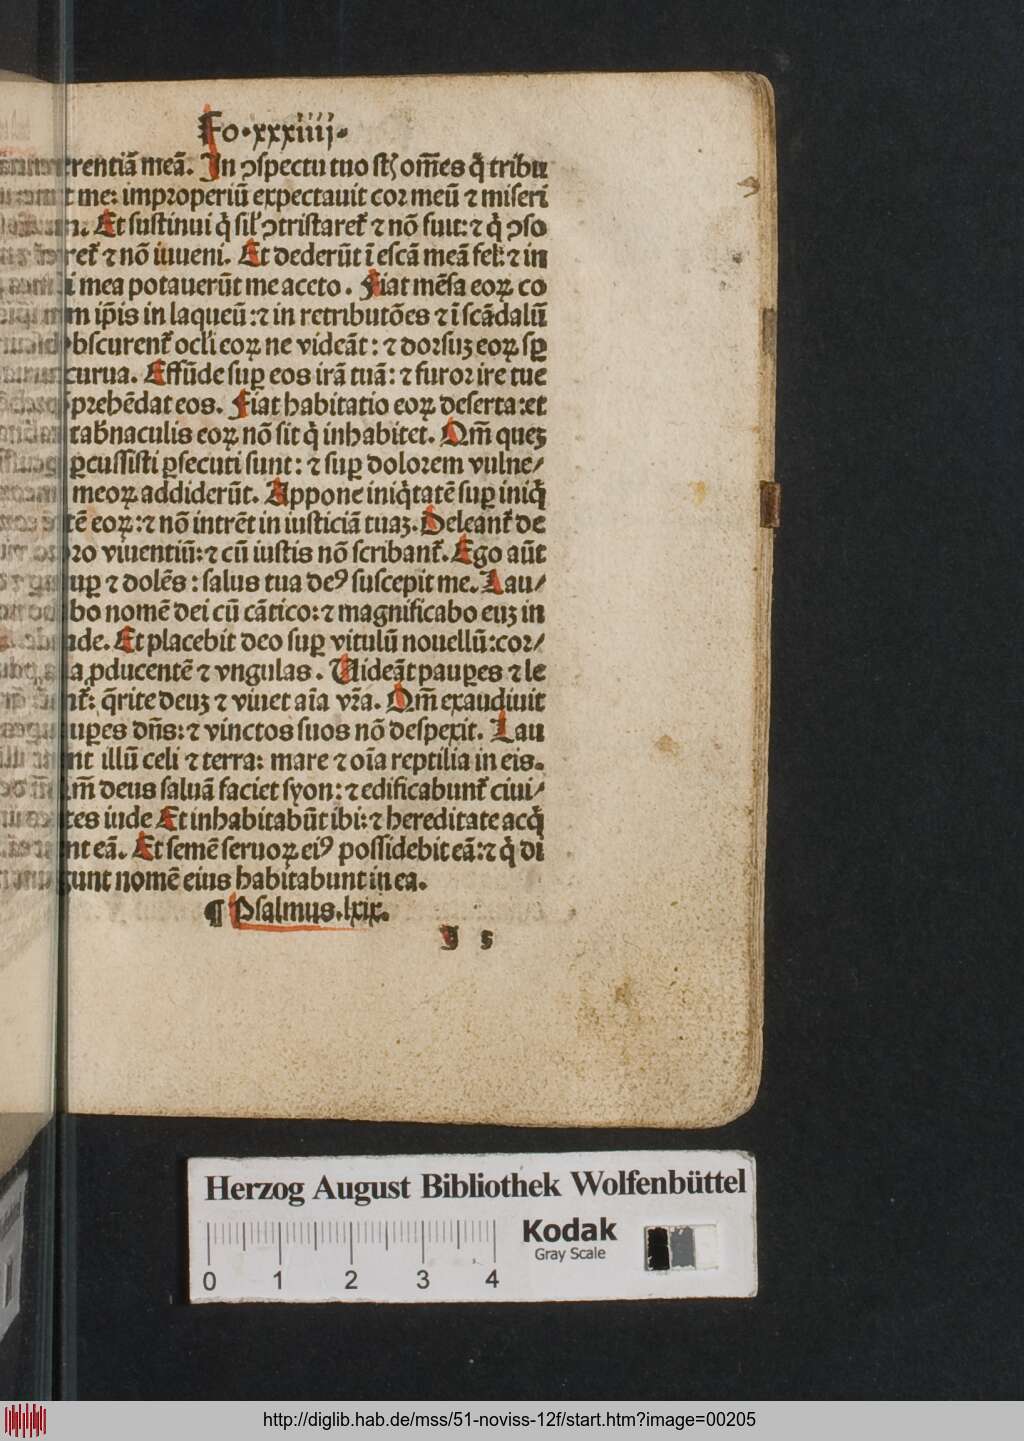 Fo·xxxiiij·
rentiã meã. In ↄspectu tuo st̃ om̃es q̃ tribu
t me: improperiũ expectauit cor meũ ⁊ miseri
Et sustinui q̃ sil̃ ↄtristaret̃ ⁊ nõ fuit: ⁊ q̃ ↄso
ret̃ ⁊ nõ inueni. Et dederũt ĩ escã meã fel: ⁊ in
i mea potauerũt me aceto. Fiat mẽsa eoꝝ co
m ip̃is in laqueũ: ⁊ in retributões ⁊ ĩ scãdalũ
bscurent̃ ocl̃i eoꝝ ne videãt: ⁊ dorsuꝫ eoꝝ sꝑ
curua. Effũde suꝑ eos irã tuã: ⁊ furor ire tue
prehẽdat eos. Fiat habitatio eoꝝ deserta: et
tab̃naculis eoꝝ nõ sit q̃ inhabitet. Qm̃ queꝫ
ꝑcussisti ꝑsecuti sunt: ⁊ suꝑ dolorem vulne/
meoꝝ addiderũt. Appone iniq̃tatẽ suꝑ iniq̃
tẽ eoꝝ: ⁊ nõ intrẽt in iusticiã tuaꝫ. Deleant̃ de
ro viuentiũ: ⁊ cũ iustis nõ scribant̃. Ego aũt
uꝑ ⁊ dolẽs: salus tua deꝰ suscepit me. Lau/
bo nomẽ dei cũ cãtico: ⁊ magnificabo euꝫ in
de. Et placebit deo suꝑ vitulũ nouellũ: cor/
a ꝓducentẽ ⁊ vngulas. Uideãt pauꝑes ⁊ le
nt̃: q̃rite deuꝫ ⁊ viuet aĩa vr̃a. Qm̃ exaudiuit
uꝑes dñs: ⁊ vinctos suos nõ despexit. Lau
nt illũ celi ⁊ terra: mare ⁊ oĩa reptilia in eis.
m̃ deus saluã faciet syon: ⁊ edificabunt̃ ciui/
tes iude Et inhabitabũt ibi: ⁊ hereditate acq̃
nt eã. Et semẽ seruoꝝ eiꝰ possidebit eã: ⁊ q̃ di
gunt nomẽ eius habitabunt in ea.
¶ Psalmus.lxix.
J 5
Herzog August Bibliothek Wolfenbüttel
Kodak
Gray Scale
0 1 2 3 4
http://diglib.hab.de/mss/51-noviss-12f/start.htm?image=00205